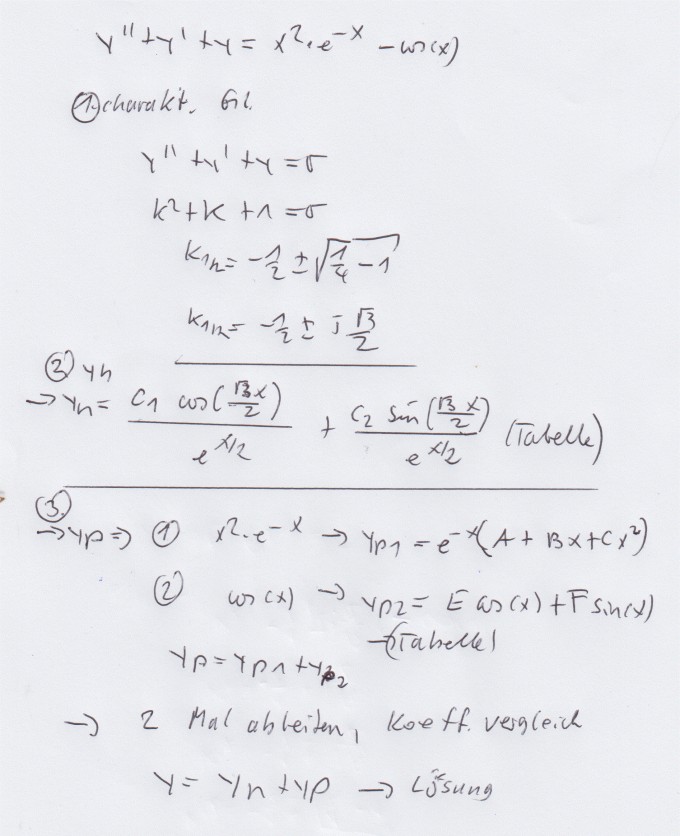 y'' + y' + y = x²·e^-x - cos(x)
① charakt. Gl.
y'' + y' + y = 0
k² + k + 1 = 0
k1/2 = -1/2 ± √(1/4 - 1)
k1/2 = -1/2 ± j √3/2
② yh
→ yh = C1 cos(√3x/2)/e^x/2 + C2 sin(√3x/2)/e^x/2 (Tabelle)
③.
→ yp ⇒ ① x²·e^-x → yp1 = e^-x(A + Bx + Cx²)
② cos(x) → yp2 = E cos(x) + F sin(x)
→ (Tabelle)
yp = yp1 + yp2
→ 2 Mal ableiten, Koeff. vergleich
y = yh + yp → Lösung